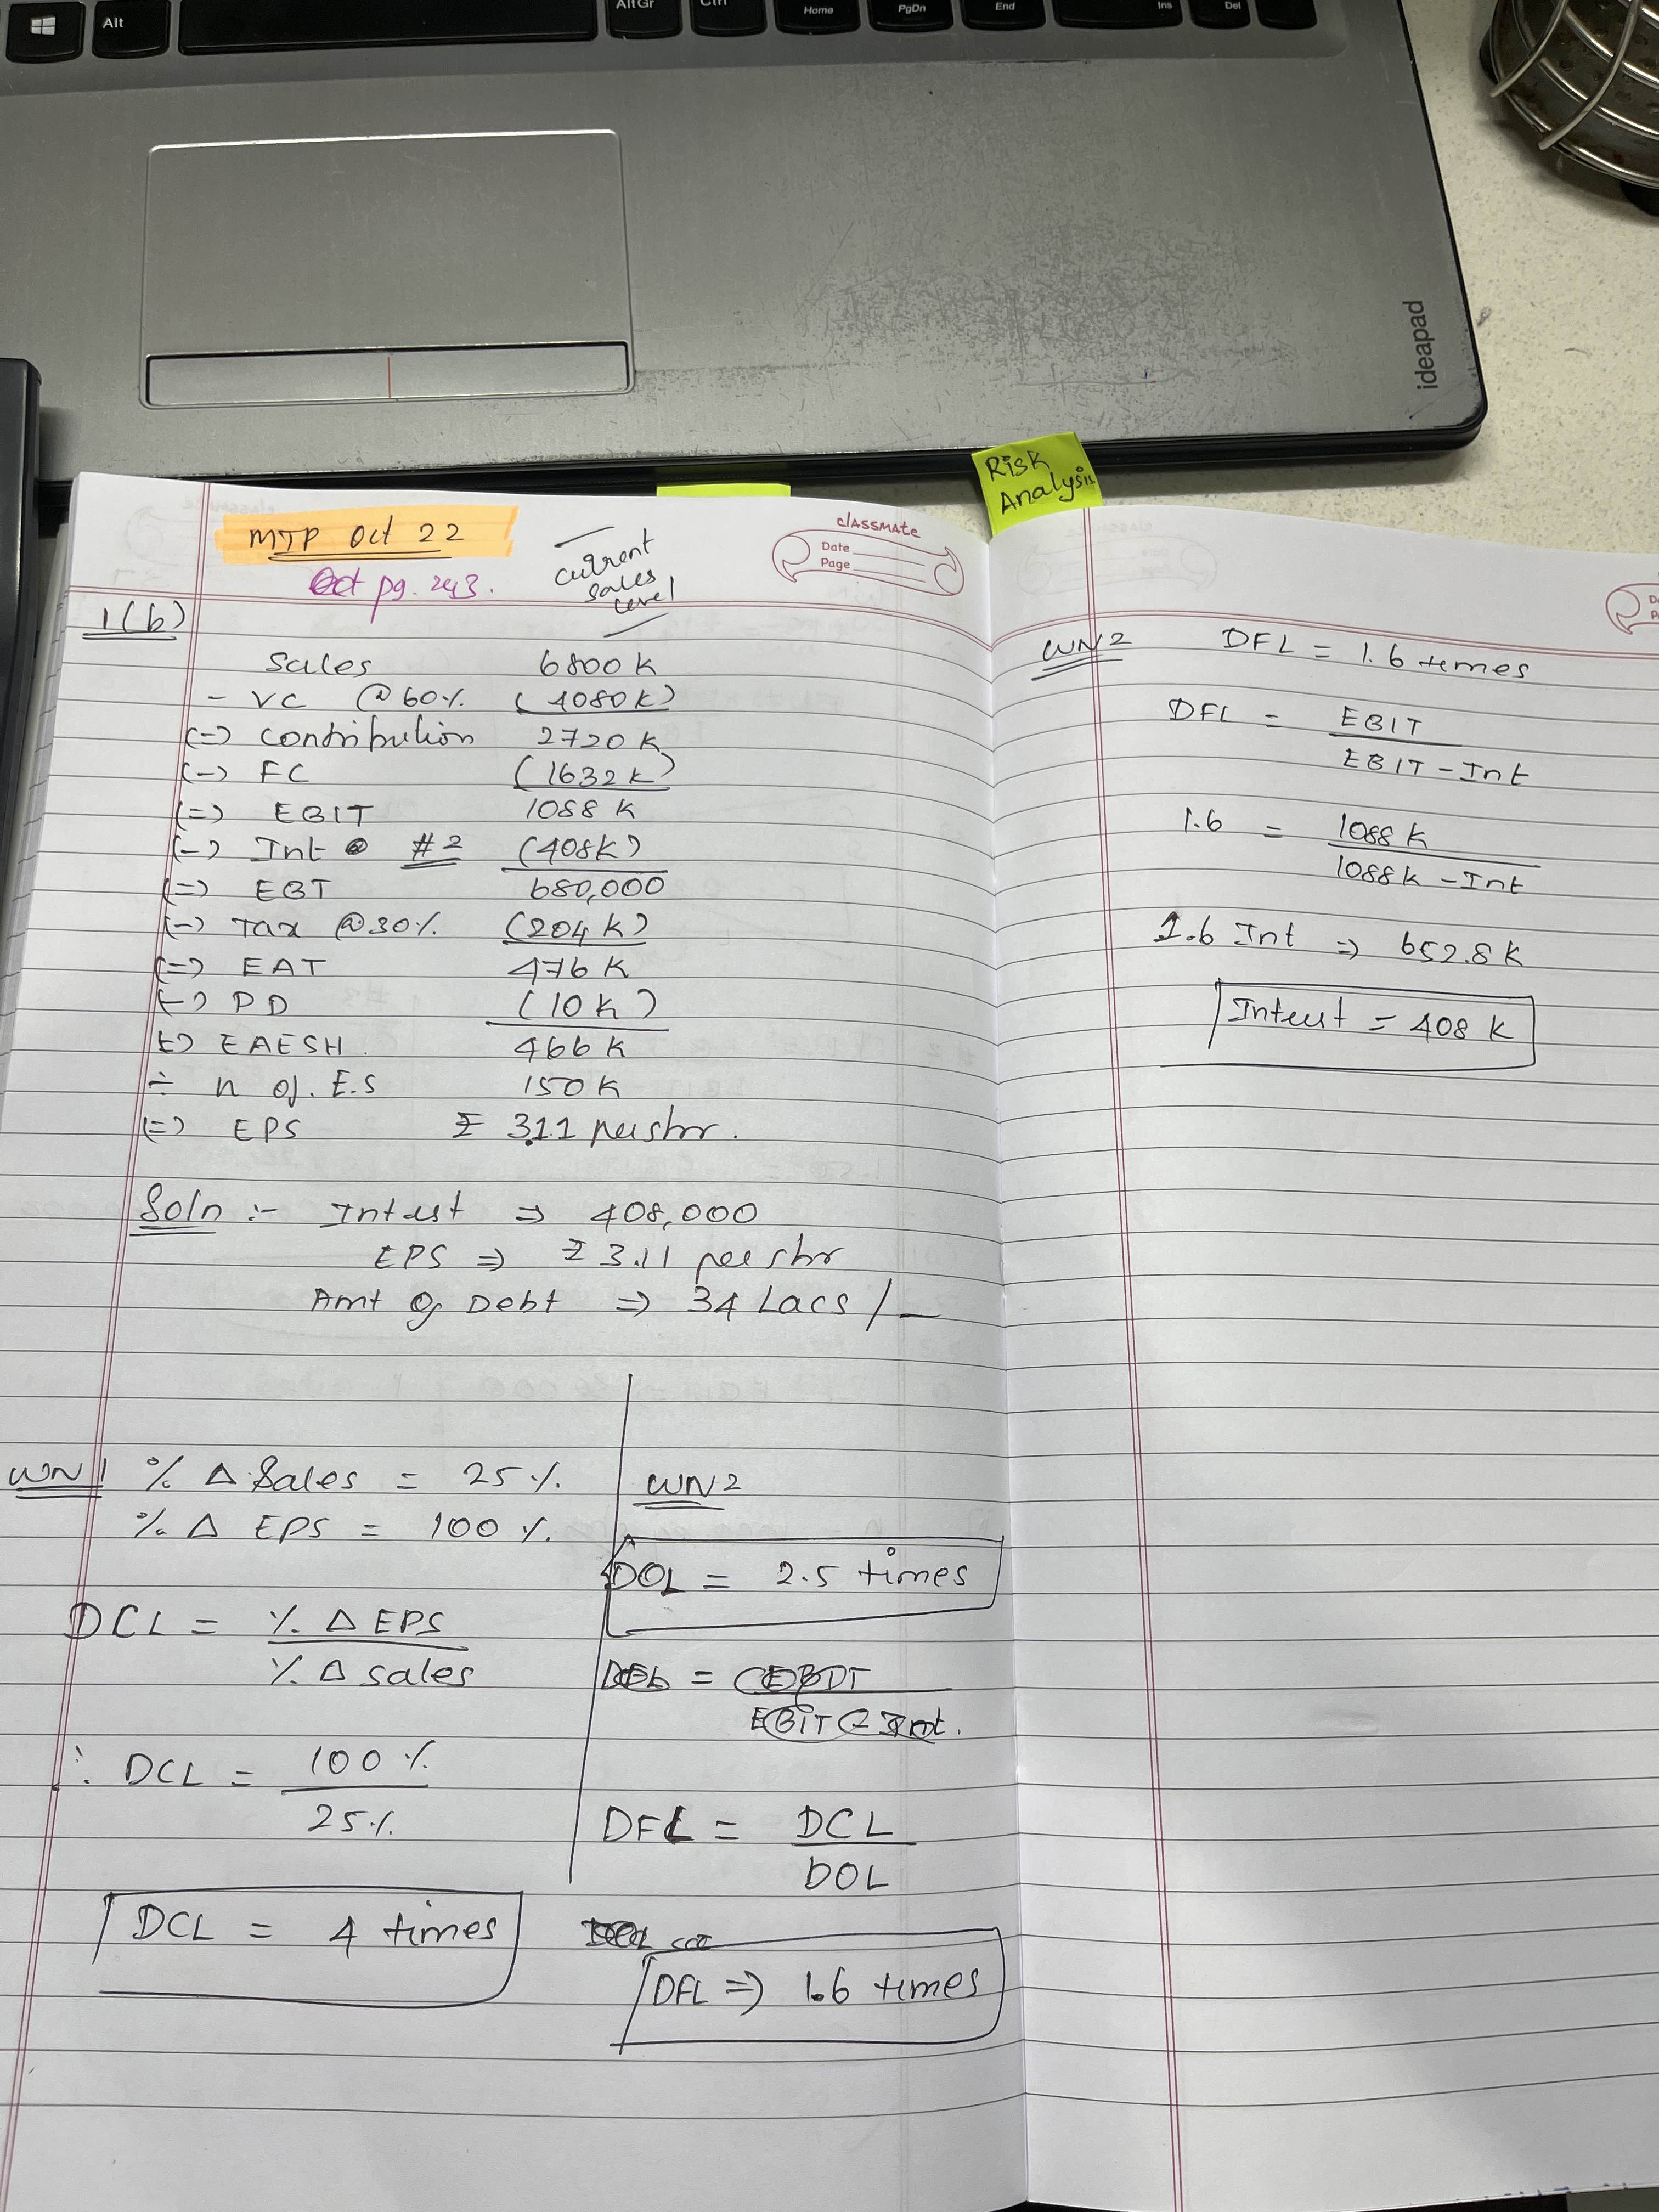 Alt
AltGr
Ctrl
Home
PgDn
End
Ins
Del
ideapad
Risk
Analysis
MTP Oct 22
Oct pg. 243.
current
sales
level
classmate
Date
Page
1(b)
Sales 6800 K
- VC @ 60% (4080K)
(=) Contribution 2720 K
(-) FC (1632K)
(=) EBIT 1088 K
(-) Int #2 (408K)
(=) EBT 680,000
(-) Tax @30% (204K)
(=) EAT 476 K
(-) PD (10K)
(=) EAESH. 466K
÷ n of. E.S 150K
(=) EPS ₹ 3.11 per shr.
Soln :- Interest ⇒ 408,000
EPS ⇒ ₹ 3.11 per shr
Amt of Debt ⇒ 34 Lacs /—
WN1 % Δ Sales = 25%
% Δ EPS = 100%.
DCL = % Δ EPS
% Δ sales
∴ DCL = 100%
25%
DCL = 4 times
WN2
DOL = 2.5 times
DFL = DCL
DOL
DFL ⇒ 1.6 times
WN2 DFL = 1.6 times
DFL = EBIT
EBIT - Int
1.6 = 1088 K
1088K - Int
1.6 Int ⇒ 652.8 K
Interest = 408 K